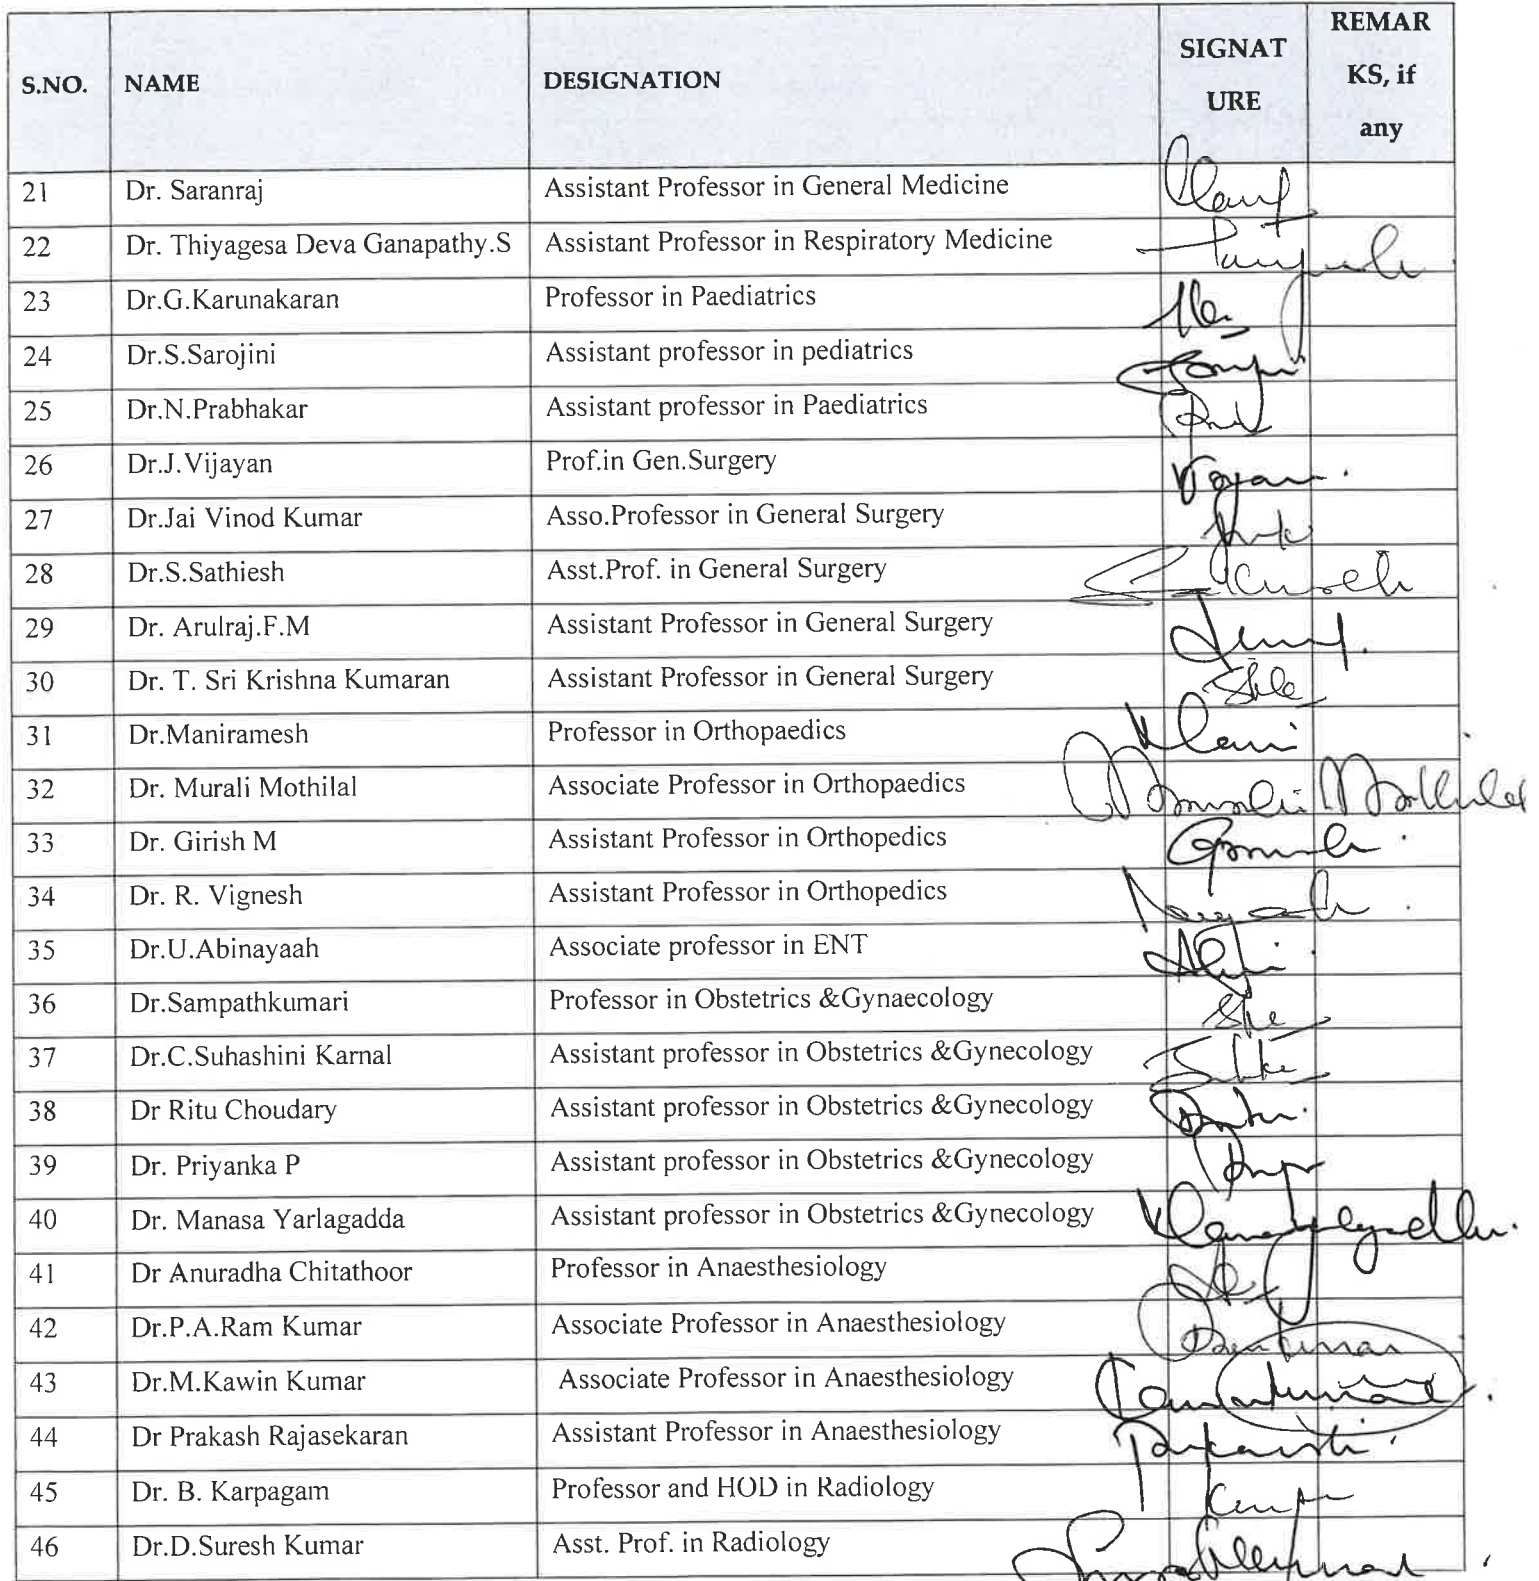 S.NO. NAME DESIGNATION SIGNAT URE REMAR KS, if any
21 Dr. Saranraj Assistant Professor in General Medicine
22 Dr. Thiyagesa Deva Ganapathy.S Assistant Professor in Respiratory Medicine
23 Dr.G.Karunakaran Professor in Paediatrics
24 Dr.S.Sarojini Assistant professor in pediatrics
25 Dr.N.Prabhakar Assistant professor in Paediatrics
26 Dr.J.Vijayan Prof.in Gen.Surgery
27 Dr.Jai Vinod Kumar Asso.Professor in General Surgery
28 Dr.S.Sathiesh Asst.Prof. in General Surgery
29 Dr. Arulraj.F.M Assistant Professor in General Surgery
30 Dr. T. Sri Krishna Kumaran Assistant Professor in General Surgery
31 Dr.Maniramesh Professor in Orthopaedics
32 Dr. Murali Mothilal Associate Professor in Orthopaedics
33 Dr. Girish M Assistant Professor in Orthopedics
34 Dr. R. Vignesh Assistant Professor in Orthopedics
35 Dr.U.Abinayaah Associate professor in ENT
36 Dr.Sampathkumari Professor in Obstetrics &Gynaecology
37 Dr.C.Suhashini Karnal Assistant professor in Obstetrics &Gynecology
38 Dr Ritu Choudary Assistant professor in Obstetrics &Gynecology
39 Dr. Priyanka P Assistant professor in Obstetrics &Gynecology
40 Dr. Manasa Yarlagadda Assistant professor in Obstetrics &Gynecology
41 Dr Anuradha Chitathoor Professor in Anaesthesiology
42 Dr.P.A.Ram Kumar Associate Professor in Anaesthesiology
43 Dr.M.Kawin Kumar Associate Professor in Anaesthesiology
44 Dr Prakash Rajasekaran Assistant Professor in Anaesthesiology
45 Dr. B. Karpagam Professor and HOD in Radiology
46 Dr.D.Suresh Kumar Asst. Prof. in Radiology